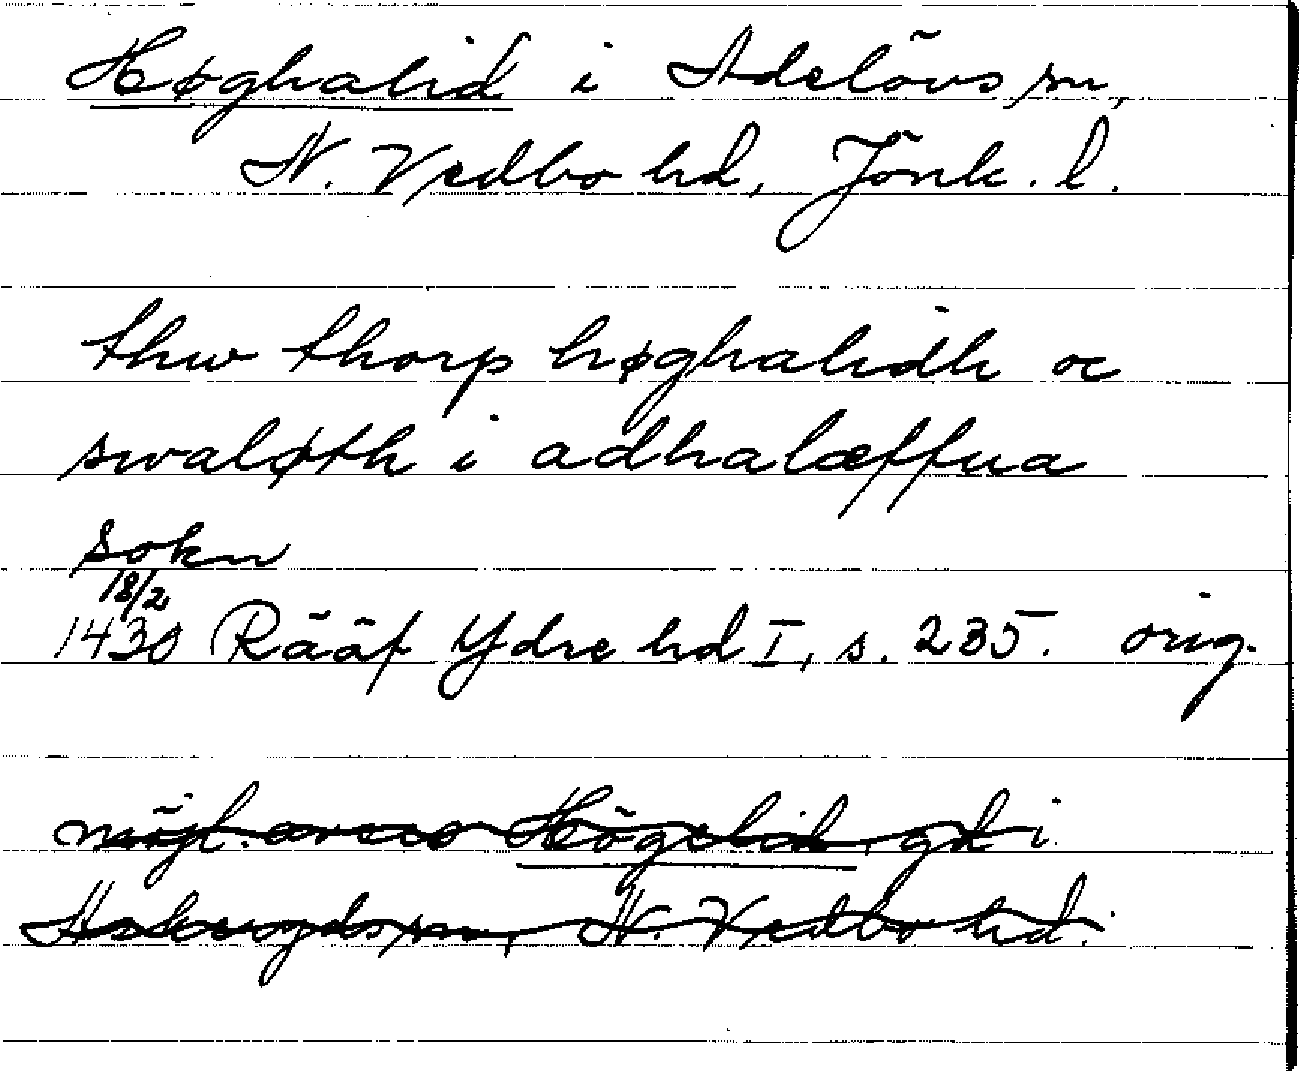 Høghalid i Adelövs sn,
N. Vedbo hd, Jönk. l.
thw thorp høghalidh oc
swaløth i adhalæffua
sokn
18/2
1430 Rääf Ydre hd I, s. 235. orig.
möjl. avses Högelid, gd i
Askeryds sn, N. Vedbo hd.